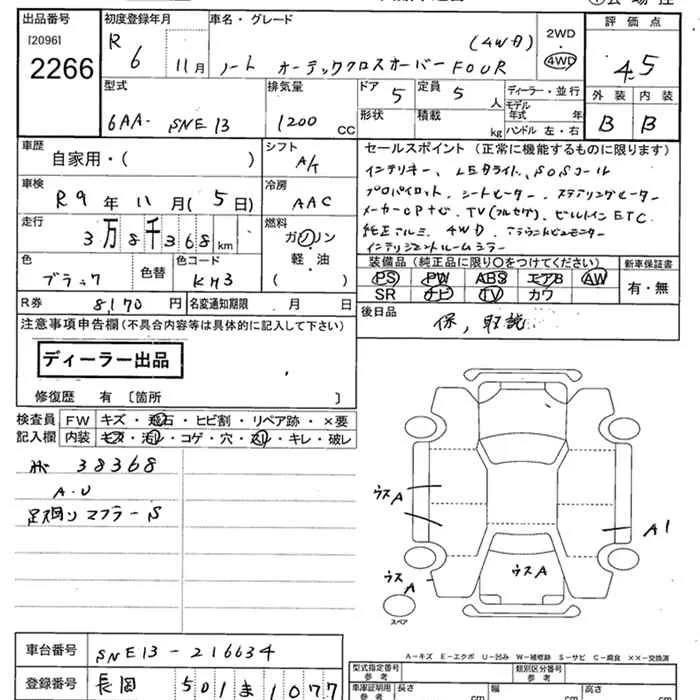 出品番号 初度登録年月 車名・グレード 評価点
[2096] R 6 11月 (4WD) 2WD・4WD 4.5
2266 ノート オーテッククロスオーバー FOUR
型式 排気量 ドア 5 定員 5 人 ディーラー・並行 外装 内装
6AA- SNE13 1200 CC 形状 積載 kg モデル年式 年 B B
ハンドル 左・右
車歴 自家用・( ) シフト A/ セールスポイント(正常に機能するものに限ります)
車検 R9 年 11 月 ( 5 日) 冷房 AAC インテリキー、LEDライト、SOSコール
プロパイロット、シートヒーター、ステアリングヒーター
走行 3万8千368km 燃料 ガソリン・軽油 ( ) メーカーOPナビ、TV(フルセグ)、ビルトインETC、
純正アルミ、4WD、アラウンドビューモニター
インテリジェントルームミラー
色 ブラック 色替 色コード KH3 装備品(純正品に限り○をつけてください) 新車保証書
PS PW ABS エアB AW 有・無
SR ナビ TV カワ
R券 8,170 円 名変通知期限 月 日 後日品 保、取説
注意事項申告欄(不具合内容等は具体的に記入して下さい)
ディーラー出品
修復歴 有 [箇所 ]
検査員 FW キズ・飛石・ヒビ割・リペア跡・×要
記入欄 内装 キズ・汚レ・コゲ・穴・スレ・キレ・破レ
38368
A・U
マフラーS
ウスA
A1
ウスA
ウスA
スペア
A-キズ E-エクボ U-凹み W-補修跡 S-サビ C-腐食 ××-交換済
車台番号 SNE13-216634 型式指定番号 参考 類別区分番号 参考
登録番号 長岡 501ま1077 車庫証明用 参考 長さ cm 幅 cm 高さ cm